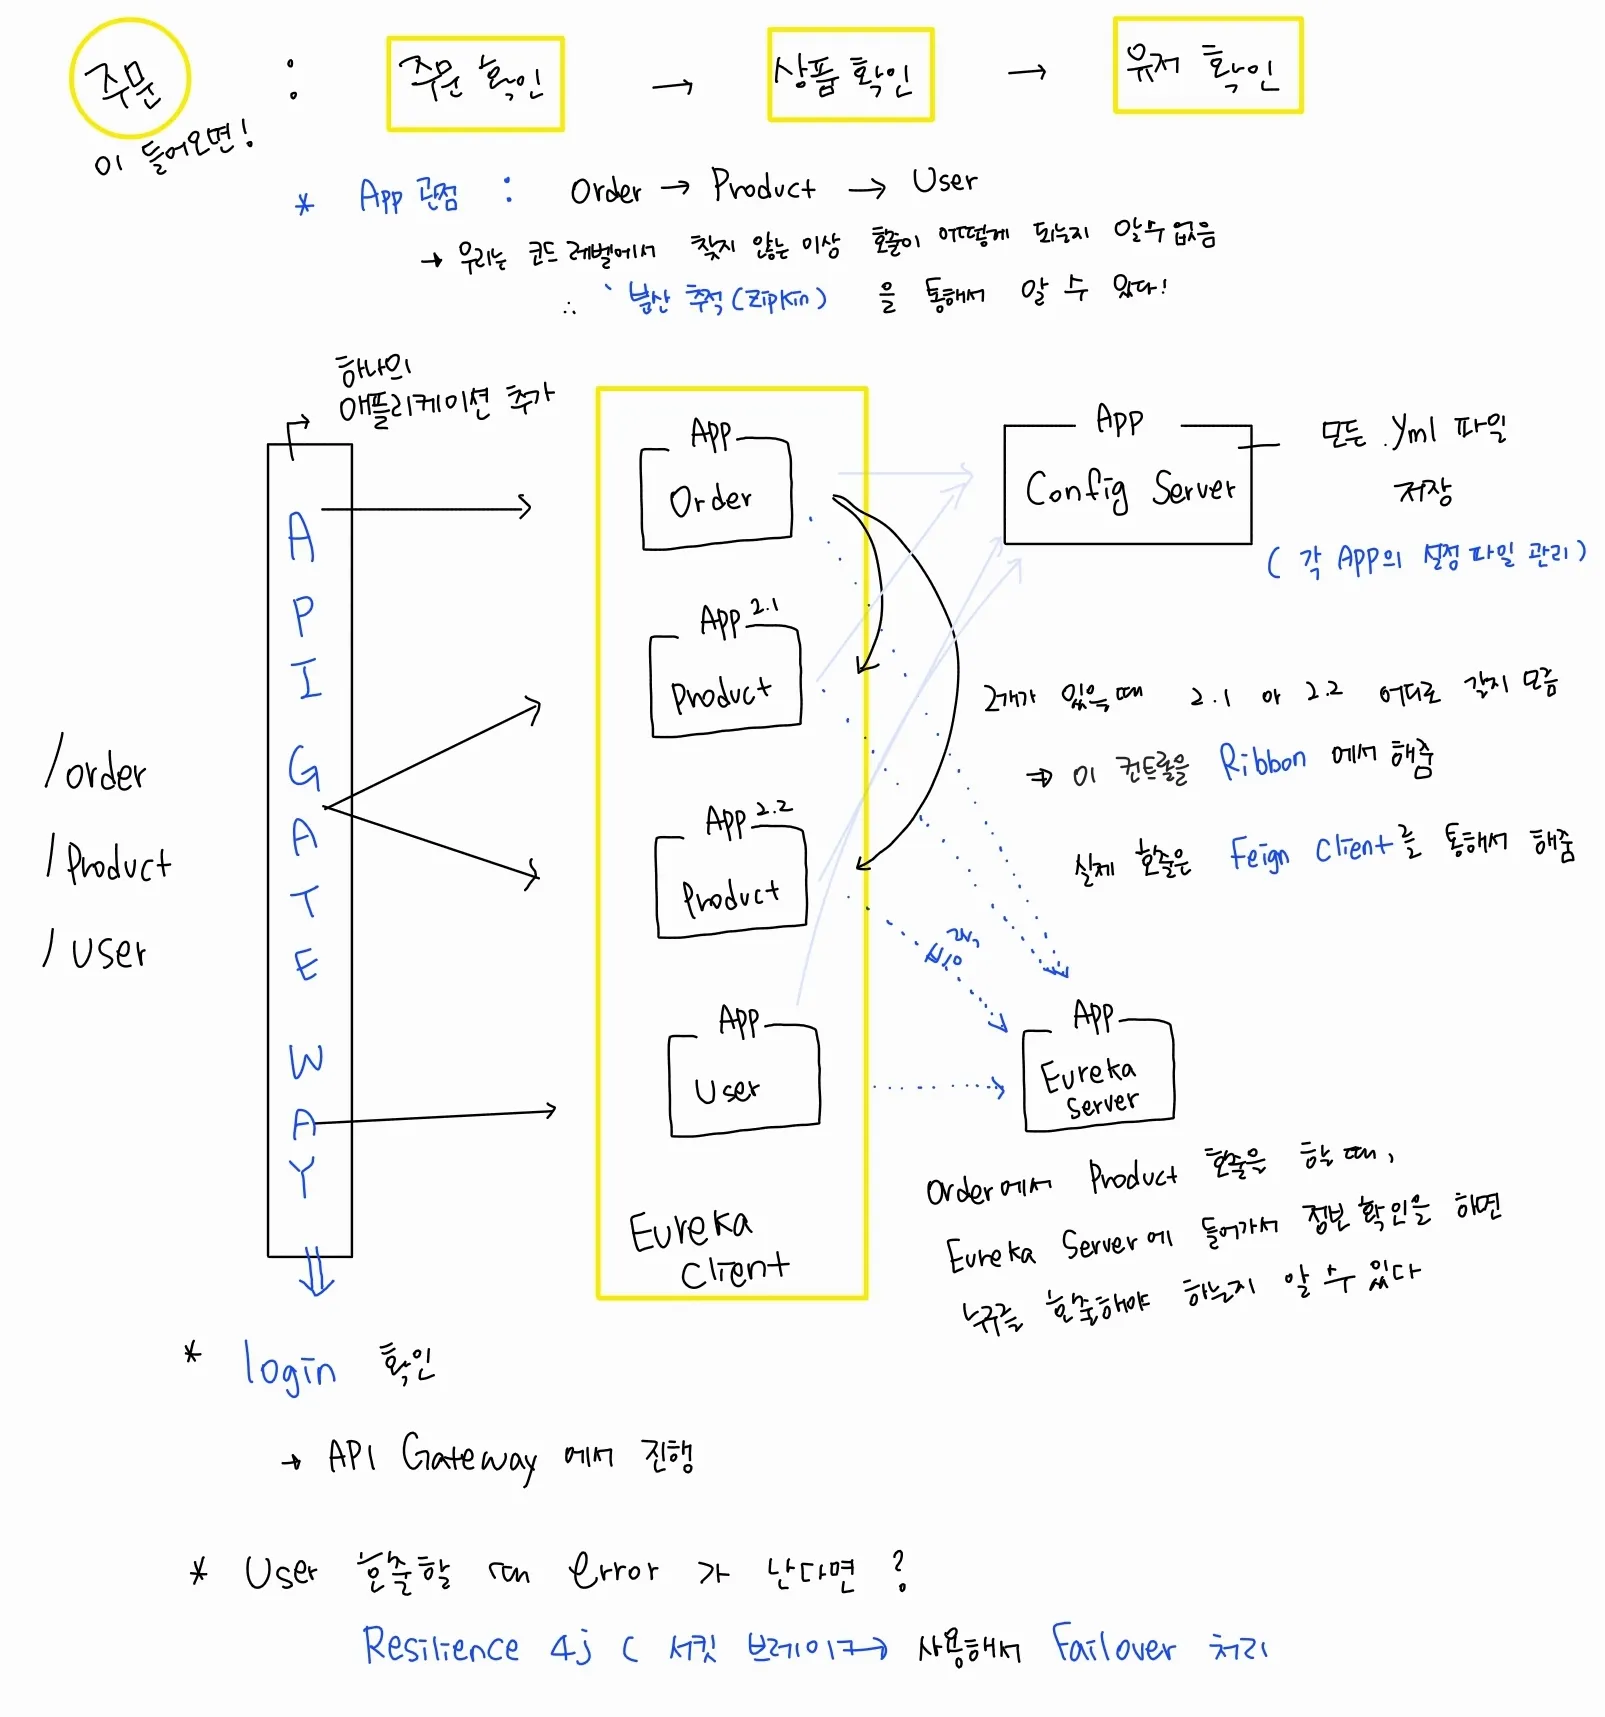 주문 : 주문 확인 → 상품 확인 → 유저 확인
이 들어오면!
* App 관점 : Order → Product → User
→ 우리는 코드 레벨에서 찾지 않는 이상 호출이 어떻게 되는지 알수 없음
∴ 분산 추적(Zipkin) 을 통해서 알 수 있다!
하나의
애플리케이션 추가
API GATE WAY
/order
/Product
/User
App
Order
App 2.1
Product
App 2.2
Product
App
User
Eureka
Client
App
Config Server
모든 .yml 파일
저장
( 각 App의 설정 파일 관리 )
2개가 있을때 2.1 아 2.2 어디로 갈지 모름
⇒ 이 컨트롤을 Ribbon 에서 해줌
실제 호출은 Feign Client를 통해서 해줌
App
Eureka
Server
Order에서 Product 호출을 할 때,
Eureka Server에 들어가서 정보 확인을 하면
누구를 호출해야 하는지 알 수 있다
* login 확인
→ API Gateway 에서 진행
* User 호출할 때 error 가 난다면 ?
Resilience 4j ( 서킷 브레이커) 사용해서 Failover 처리